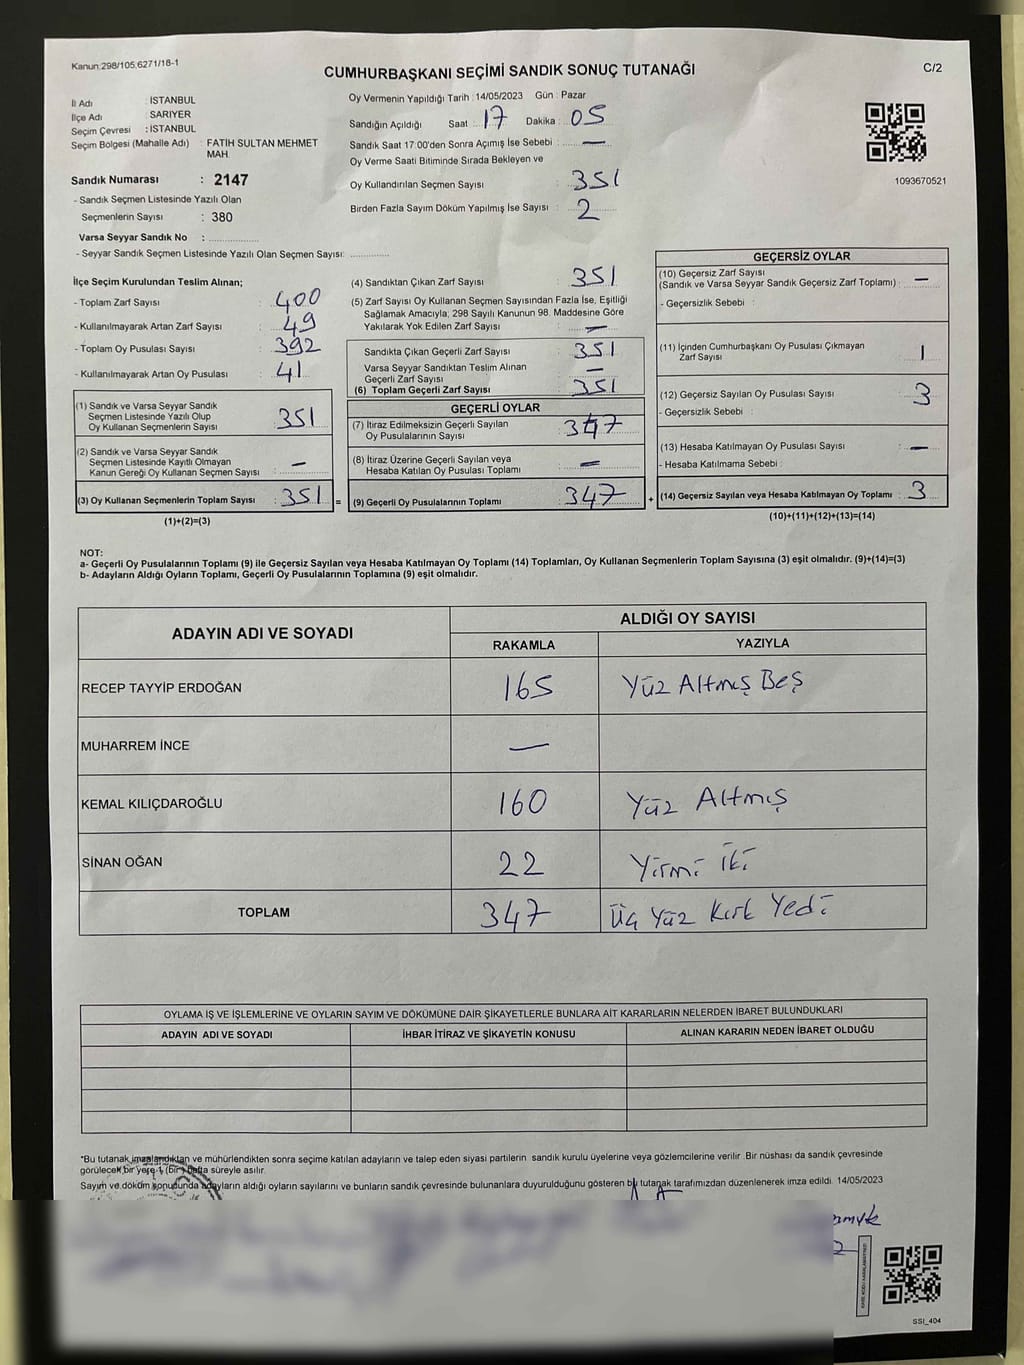 Kanun:298/105,6271/18-1
CUMHURBAŞKANI SEÇİMİ SANDIK SONUÇ TUTANAĞI
C/2
İl Adı : İSTANBUL
İlçe Adı : SARIYER
Seçim Çevresi : İSTANBUL
Seçim Bölgesi (Mahalle Adı) : FATİH SULTAN MEHMET
MAH.
Sandık Numarası : 2147
- Sandık Seçmen Listesinde Yazılı Olan
Seçmenlerin Sayısı : 380
Varsa Seyyar Sandık No : ................
- Seyyar Sandık Seçmen Listesinde Yazılı Olan Seçmen Sayısı: ............
Oy Vermenin Yapıldığı Tarih : 14/05/2023 Gün : Pazar
Sandığın Açıldığı Saat : 17 Dakika : 05
Sandık Saat 17:00'den Sonra Açımış İse Sebebi : —
Oy Verme Saati Bitiminde Sırada Bekleyen ve
Oy Kullandırılan Seçmen Sayısı : 351
Birden Fazla Sayım Döküm Yapılmış İse Sayısı : 2
1093670521
İlçe Seçim Kurulundan Teslim Alınan;
- Toplam Zarf Sayısı : 400
- Kullanılmayarak Artan Zarf Sayısı : 49
- Toplam Oy Pusulası Sayısı : 392
- Kullanılmayarak Artan Oy Pusulası : 41
(1) Sandık ve Varsa Seyyar Sandık
Seçmen Listesinde Yazılı Olup
Oy Kullanan Seçmenlerin Sayısı : 351
(2) Sandık ve Varsa Seyyar Sandık
Seçmen Listesinde Kayıtlı Olmayan
Kanun Gereği Oy Kullanan Seçmen Sayısı : —
(3) Oy Kullanan Seçmenlerin Toplam Sayısı : 351 =
(1)+(2)=(3)
(4) Sandıktan Çıkan Zarf Sayısı : 351
(5) Zarf Sayısı Oy Kullanan Seçmen Sayısından Fazla İse, Eşitliği
Sağlamak Amacıyla; 298 Sayılı Kanunun 98. Maddesine Göre
Yakılarak Yok Edilen Zarf Sayısı : —
Sandıkta Çıkan Geçerli Zarf Sayısı : 351
Varsa Seyyar Sandıktan Teslim Alınan
Geçerli Zarf Sayısı : —
(6) Toplam Geçerli Zarf Sayısı : 351
GEÇERLİ OYLAR
(7) İtiraz Edilmeksizin Geçerli Sayılan
Oy Pusulalarının Sayısı : 347
(8) İtiraz Üzerine Geçerli Sayılan veya
Hesaba Katılan Oy Pusulası Toplamı : —
(9) Geçerli Oy Pusulalarının Toplamı : 347 +
GEÇERSİZ OYLAR
(10) Geçersiz Zarf Sayısı
(Sandık ve Varsa Seyyar Sandık Geçersiz Zarf Toplamı) : —
- Geçersizlik Sebebi :
(11) İçinden Cumhurbaşkanı Oy Pusulası Çıkmayan
Zarf Sayısı : 1
(12) Geçersiz Sayılan Oy Pusulası Sayısı : 3
- Geçersizlik Sebebi :
(13) Hesaba Katılmayan Oy Pusulası Sayısı : —
- Hesaba Katılmama Sebebi :
(14) Geçersiz Sayılan veya Hesaba Katılmayan Oy Toplamı : 3
(10)+(11)+(12)+(13)=(14)
NOT:
a- Geçerli Oy Pusulalarının Toplamı (9) ile Geçersiz Sayılan veya Hesaba Katılmayan Oy Toplamı (14) Toplamları, Oy Kullanan Seçmenlerin Toplam Sayısına (3) eşit olmalıdır. (9)+(14)=(3)
b- Adayların Aldığı Oyların Toplamı, Geçerli Oy Pusulalarının Toplamına (9) eşit olmalıdır.
ADAYIN ADI VE SOYADI
ALDIĞI OY SAYISI
RAKAMLA YAZIYLA
RECEP TAYYİP ERDOĞAN 165 Yüz Altmış Beş
MUHARREM İNCE —
KEMAL KILIÇDAROĞLU 160 Yüz Altmış
SİNAN OĞAN 22 Yirmi İki
TOPLAM 347 Üç Yüz Kırk Yedi
OYLAMA İŞ VE İŞLEMLERİNE VE OYLARIN SAYIM VE DÖKÜMÜNE DAİR ŞİKAYETLERLE BUNLARA AİT KARARLARIN NELERDEN İBARET BULUNDUKLARI
ADAYIN ADI VE SOYADI İHBAR İTİRAZ VE ŞİKAYETİN KONUSU ALINAN KARARIN NEDEN İBARET OLDUĞU
*Bu tutanak imzalandıktan ve mühürlendikten sonra seçime katılan adayların ve talep eden siyasi partilerin sandık kurulu üyelerine veya gözlemcilerine verilir. Bir nüshası da sandık çevresinde
görülecek bir yere 1 (bir) hafta süreyle asılır.
Sayım ve döküm konusunda adayların aldığı oyların sayılarını ve bunların sandık çevresinde bulunanlara duyurulduğunu gösteren bu tutanak tarafımızdan düzenlenerek imza edildi. 14/05/2023
SSI_404